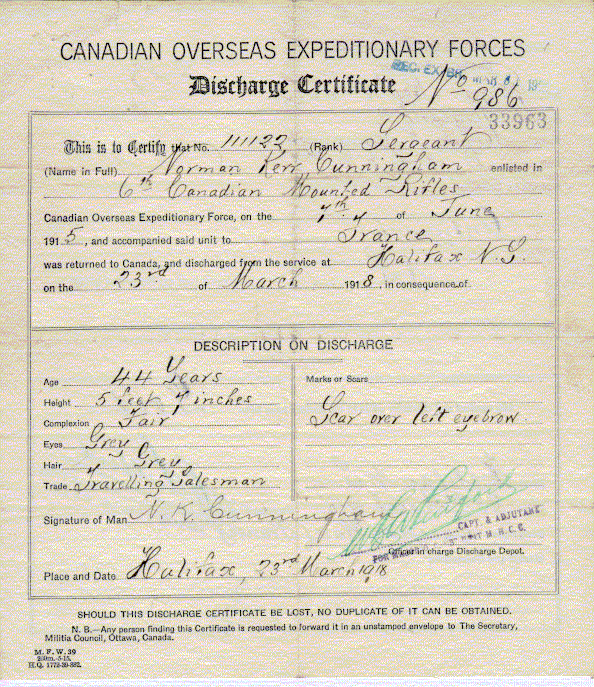 CANADIAN OVERSEAS EXPEDITIONARY FORCES
Discharge Certificate
REC. EX. BR. MAR
No 986
33963
This is to Certify that No. 111122 (Rank) Sergeant
(Name in Full) Norman Kerr Cunningham enlisted in
6th Canadian Mounted Rifles
Canadian Overseas Expeditionary Force, on the 7th of June
1915, and accompanied said unit to France
was returned to Canada, and discharged from the service at Halifax N.S.
on the 23rd of March 1918, in consequence of
DESCRIPTION ON DISCHARGE
Age 44 Years
Height 5 feet 7 inches
Complexion Fair
Eyes Grey
Hair Grey
Trade Travelling Salesman
Marks or Scars
Scar over left eyebrow
Signature of Man N. K. Cunningham
CAPT. & ADJUTANT
FOR
Officer in charge Discharge Depot.
Place and Date Halifax, 23rd March 1918
SHOULD THIS DISCHARGE CERTIFICATE BE LOST, NO DUPLICATE OF IT CAN BE OBTAINED.
N. B.—Any person finding this Certificate is requested to forward it in an unstamped envelope to The Secretary,
Militia Council, Ottawa, Canada.
M. F. W. 39
H.Q. 1772-39-882.